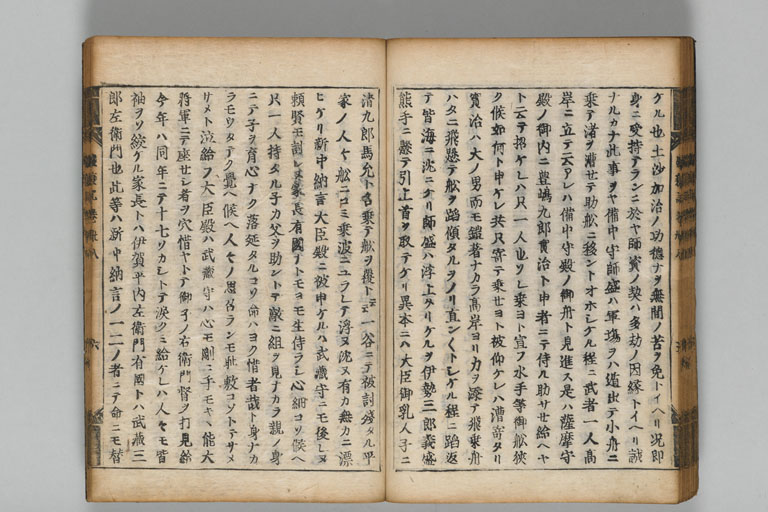 ケル也土沙加治ノ功徳ナヲ無間ノ苦ヲ免トイヘリ況即
身ニ受持テランニ於ヤ師資ノ契ハ多劫ノ因縁トイヘリ誠
ナルカナ此事ヲヤ備中守師盛ハ軍場ヲハ遁出テ小舟ニ
乗テ渚ヲ漕セテ助舩ニ移ントオホシケル程ニ武者一人高
岸ニ立テ云アレハ備中守殿ノ御舟ト見進ス是ハ薩摩守
殿ノ御内ニ豊嶋九郎實治ト申者ニテ侍ル助サセ給ヘヤ
ト云テ招ケレハ只一人也ソレ乗ヨト宣フ水手等御舩狭
ク候如何ト申ケレ共只寄テ乗セヨト被仰ケレハ漕寄タリ
實治ハ大ノ男而モ鎧著ナカラ高岸ヨリカヲ添テ飛乗舟
ハタニ飛懸テ舩ヲ蹈傾タルヲノリ直ン〱トシケル程ニ蹈返
テ皆海ニ沈ニケリ師盛ハ浮上タリケルヲ伊勢三郎義盛
熊手ニ懸テ引上首ヲ取テケリ異本ニハ大臣御乳人子ニ
清九郎馬允ト名乗テ舩ヲ覆トモ一谷ニテ被討殘タル平
家ノ人々舩ニコミ乗波ニユラレテ浮ヌ沈ヌ有カ無カニ漂
ヒケリ新中納言大臣殿ニ被申ケルハ武藏守ニモ後レヌ
頼賢モ討レヌ家長有國テトモヨモ生侍ラシ心細コソ候ヘ
只一人持タル子カ父ヲ助ントテ敵ニ組ヲ見ナカラ親ノ身
ニテ子ヲ育心ナク落延タルコソ命ハヨク惜者哉ト身ナカ
ラモウタテク覚ヘ候ヘ人々ノ思召ランモ耻敷コソトテサメ
サメト泣給フ大臣殿ハ武藏守ハ心モ剛ニ手モキヽ能大
將軍ニテ座セシ者ヲ穴惜ヤトテ御子ノ右衛門督ヲ打見給
今年ハ同年ニテ十七ソカシトテ涙クミ給ケレハ人々モ皆
袖ヲソ絞ケル家長トハ伊賀平内左衛門有國トハ武藏三
郎左衛門也此等ハ新中納言ノ一二ノ者ニテ命ニモ替